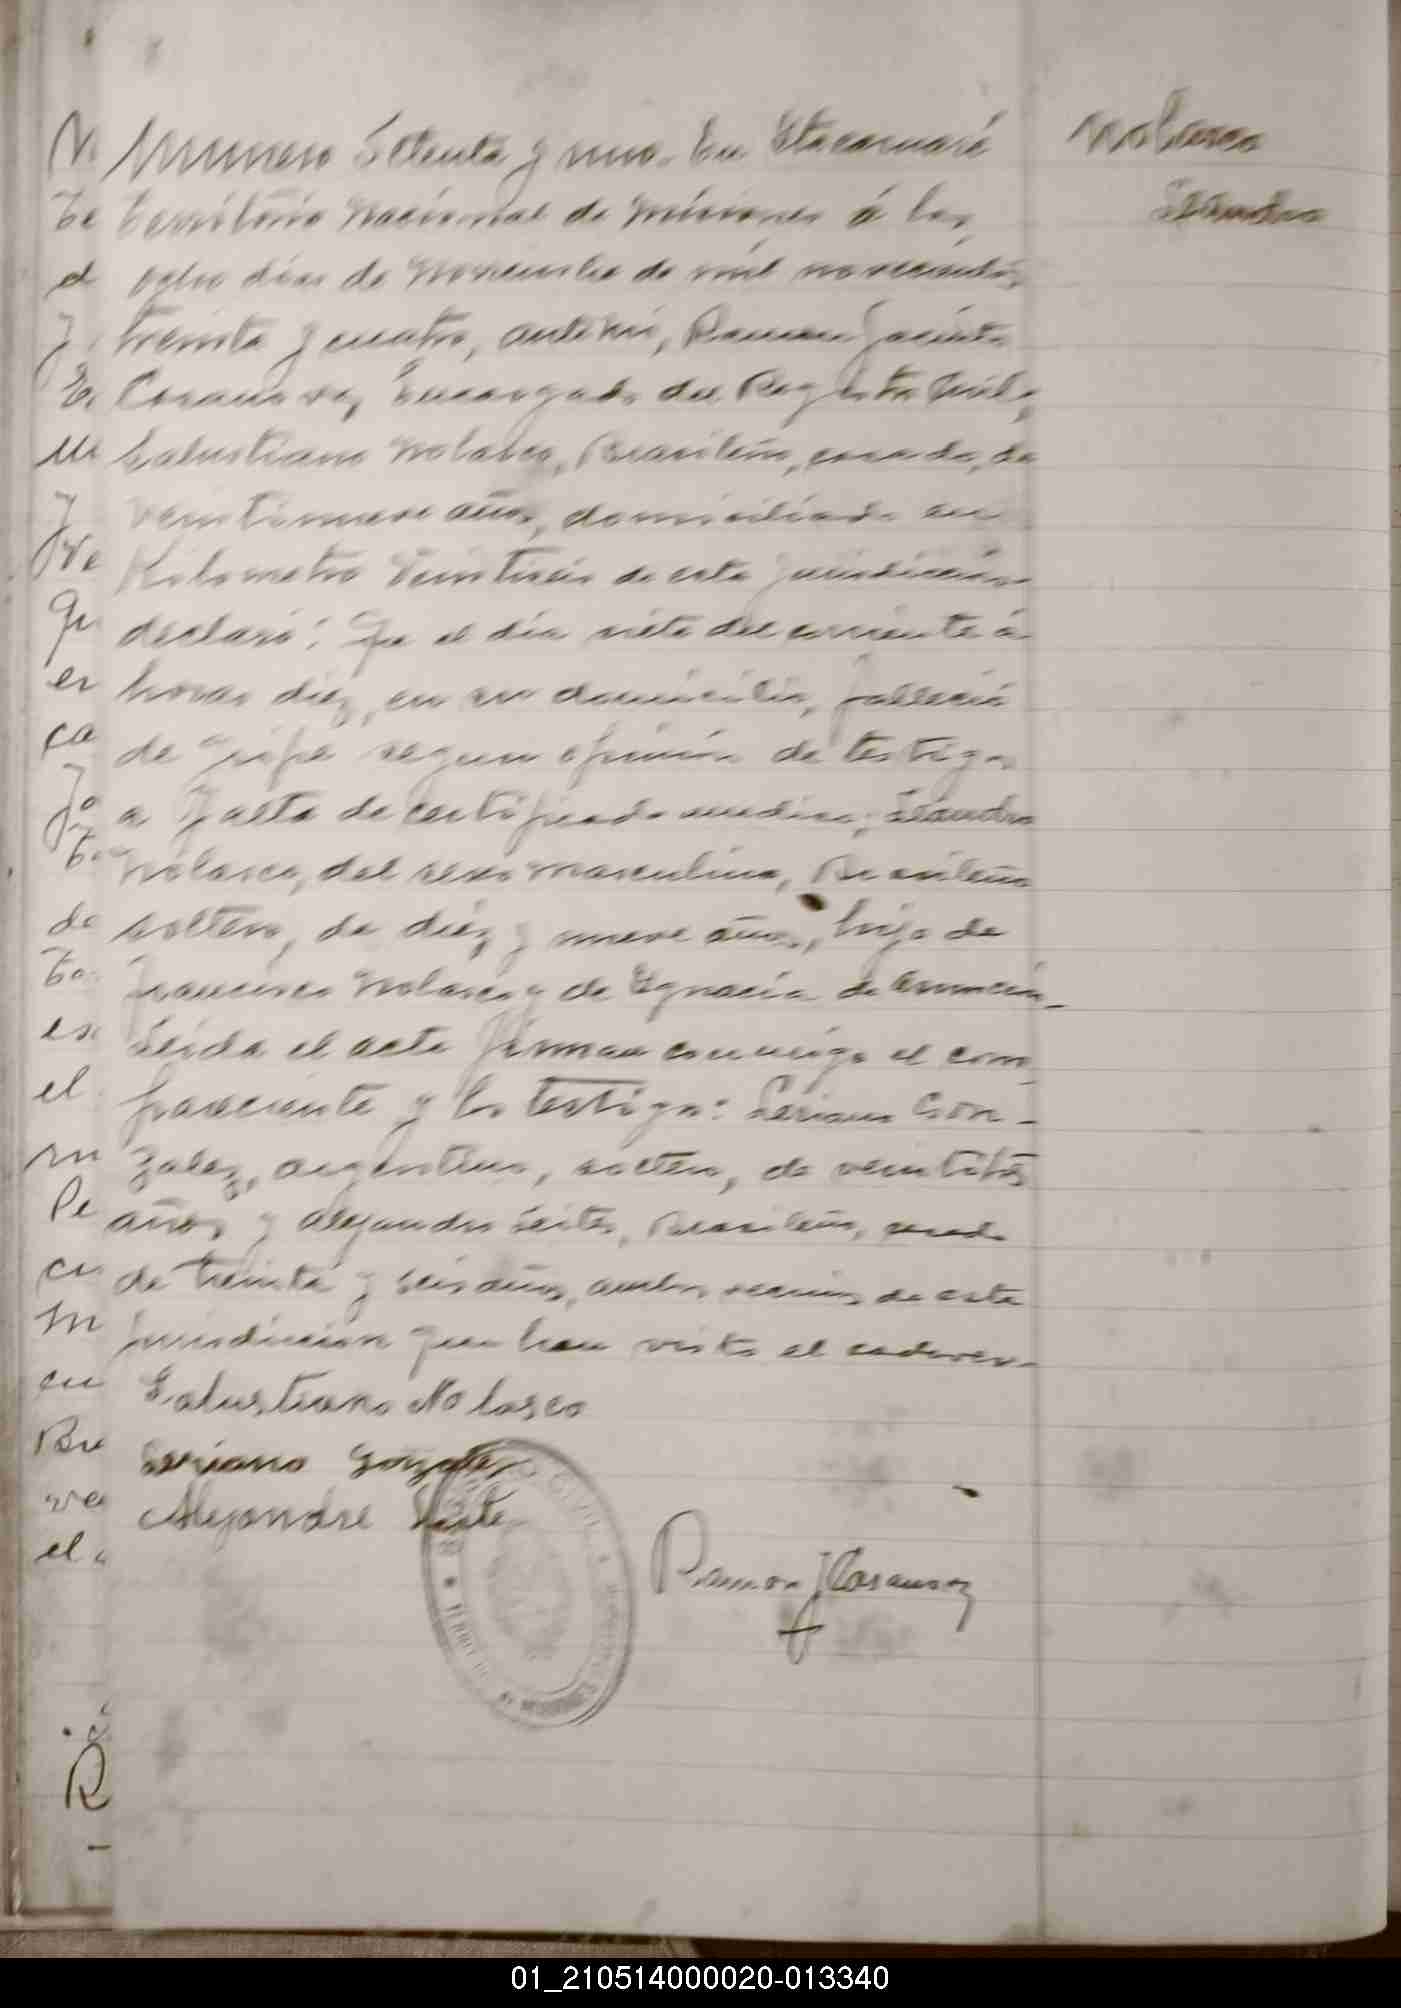 Numero Setenta y uno. En Itacaruaré
Territorio Nacional de Misiones á los
ocho dias de Noviembre de mil novecientos
treinta y cuatro, ante mi, Ramon Jacinto
Casanova, Encargado del Registro Civil,
Salustiano Nolasco, Brasileño, casado, de
veintinueve años, domiciliado en
Kilometro Veintiseis de esta jurisdicción
declaró: Que el día siete del corriente á
horas diez, en su domicilio, falleció
de gripe segun opinión de testigos
a falta de certificado medico; Leandro
Nolasco, del sexo masculino, Brasileño
soltero, de diéz y nueve años, hijo de
Francisco Nolasco y de Ygnacia de
Leida el acta firman conmigo el com
pareciente y los testigos: Gon-
zalez, argentino, soltero, de
años y Alejandro Leites, Brasileño, casado
de treinta y seis años, ambos vecinos de esta
jurisdiccion que han visto el cadaver.
Salustiano Nolasco
Gonzalez
Alejandre
Ramon J Casanova
Nolasco
Leandro
N
Te
d
y
E
un
y
Ne
Qu
er
ca
de
to
es
el
m
Pe
cu
M
en
Bre
ve
el
R
01_210514000020-013340